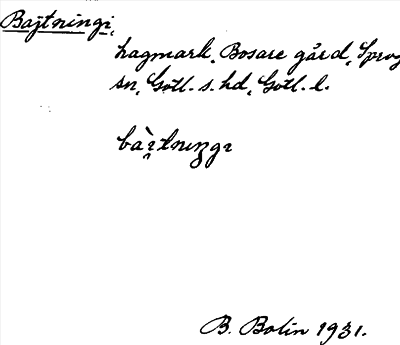 Bajtningi,
hagmark, Bosare gård, Sprog
sn, Gotl. s. hd, Gotl. l.
bài̯tnıŋgı
B. Bolin 1931.